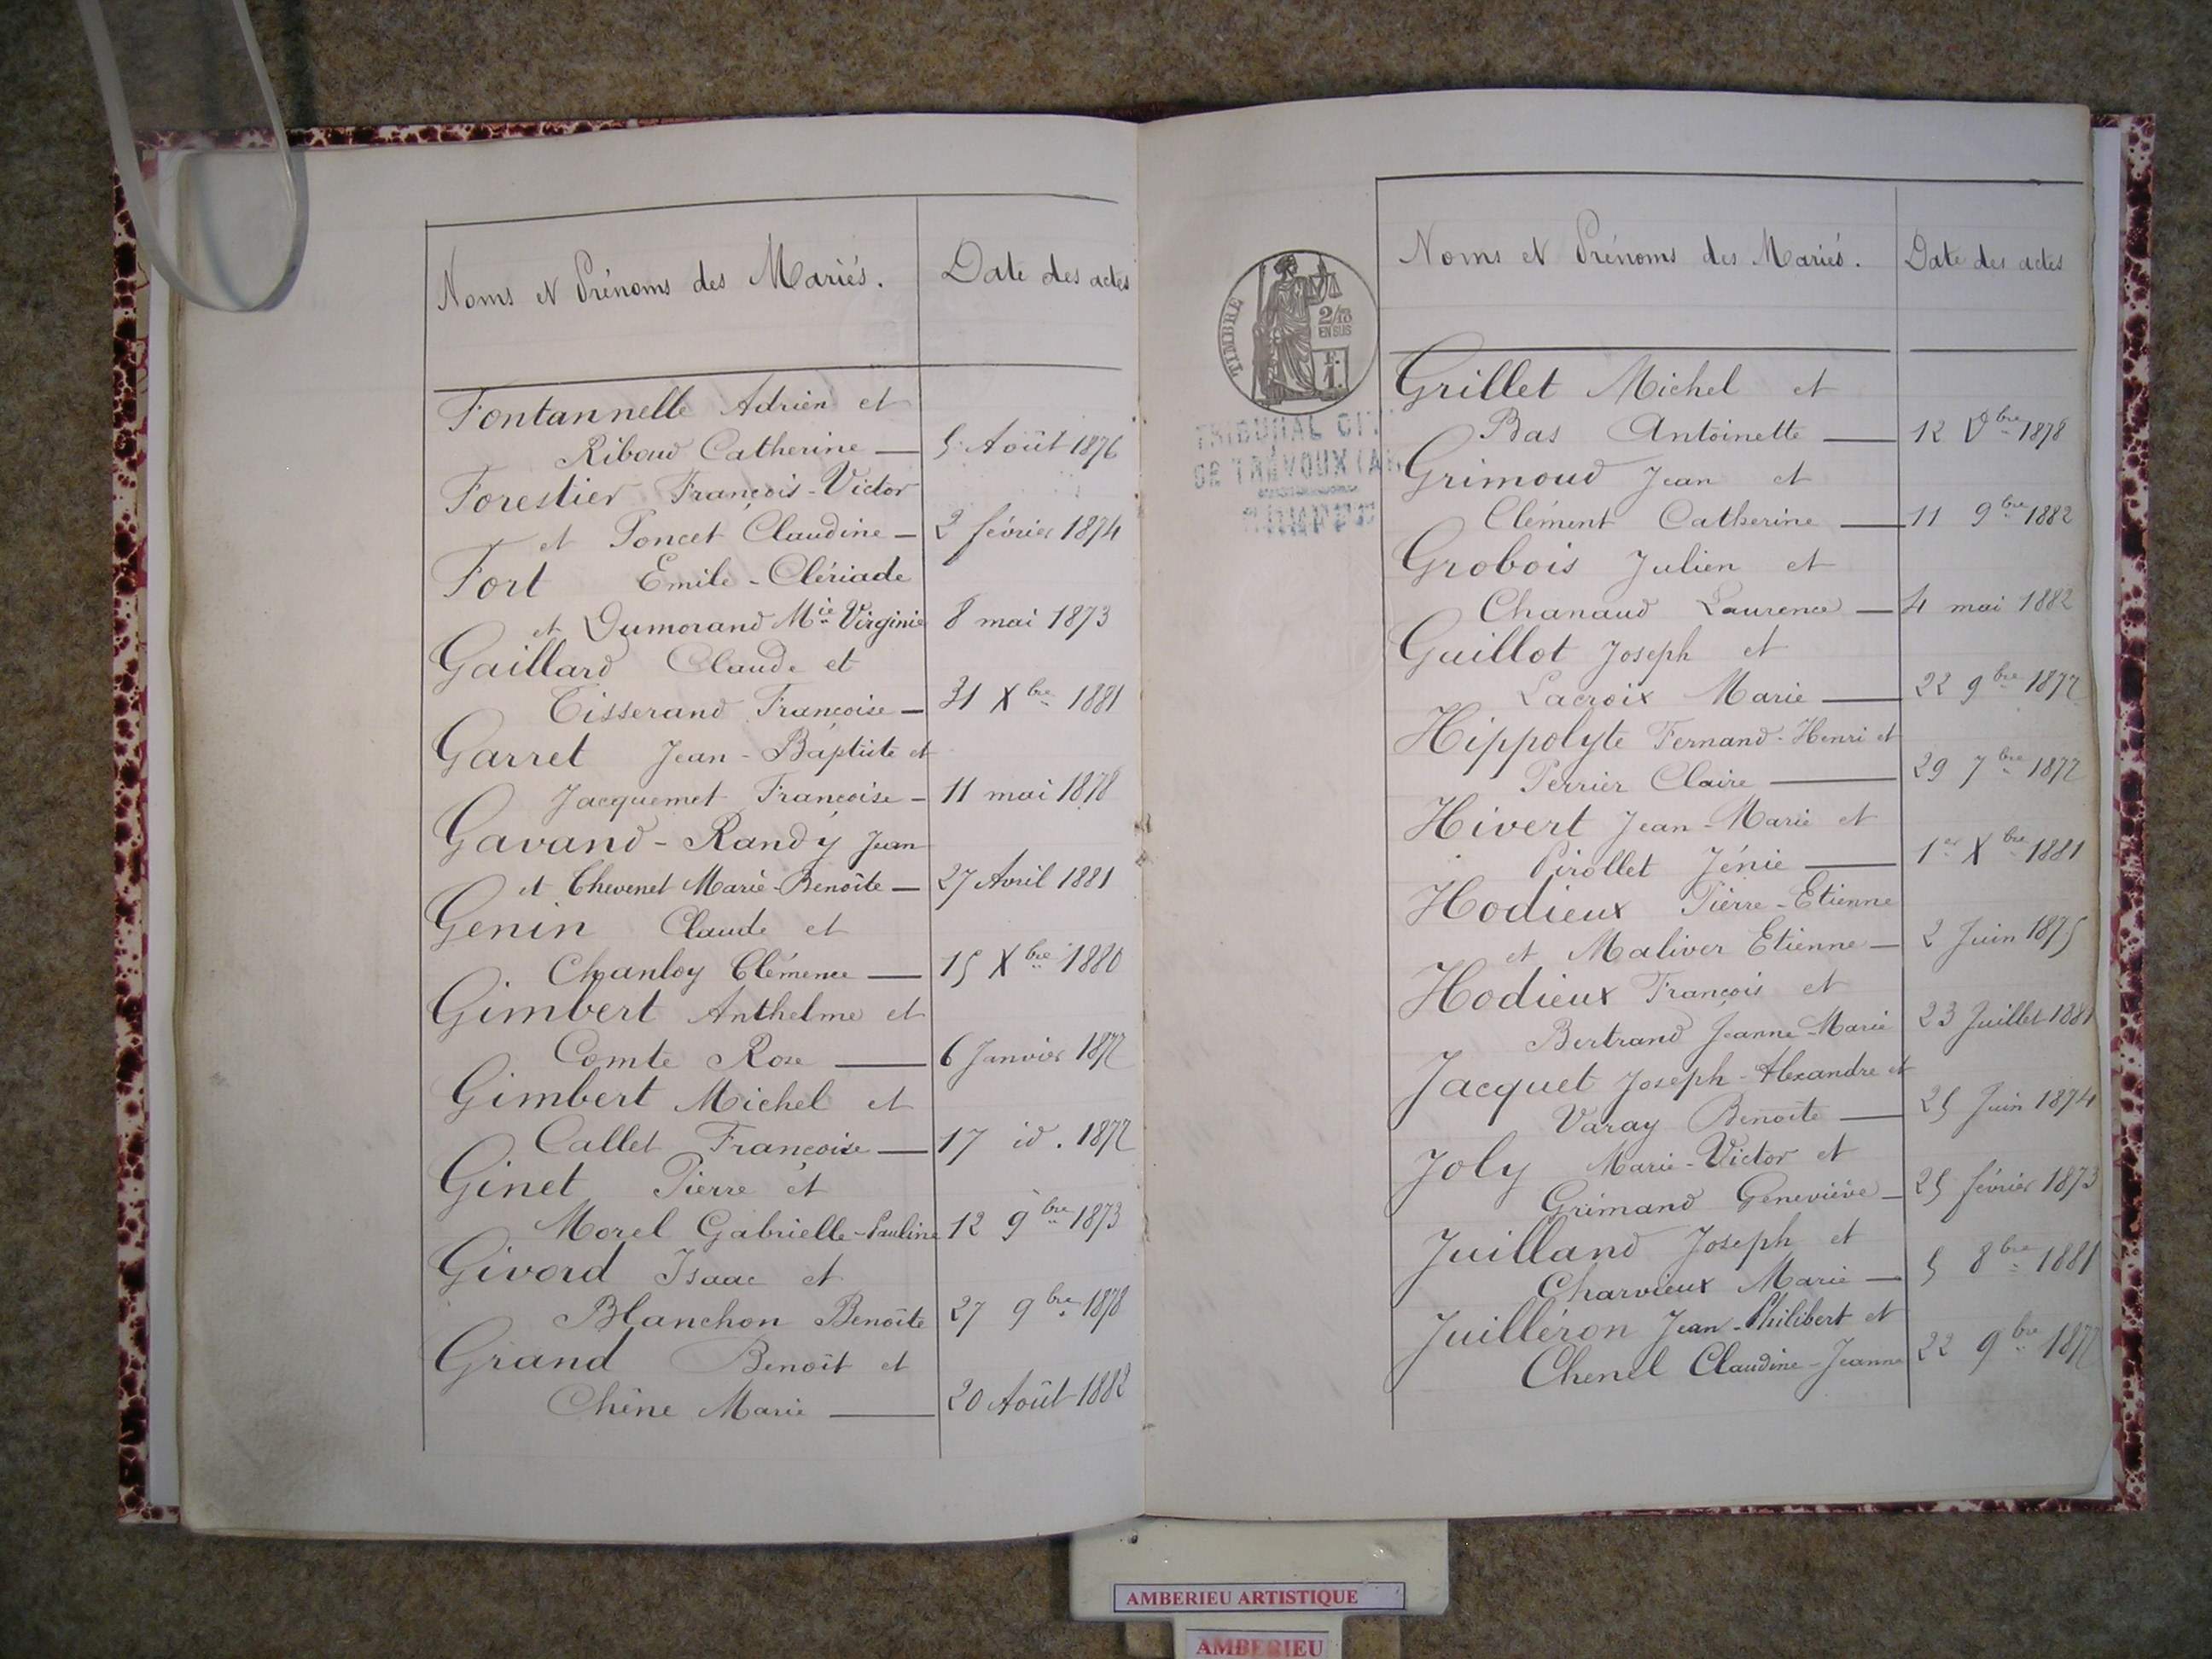 Noms et Prénoms des Mariés. Date des actes
Fontannelle Adrien et
Riboud Catherine — 5 Août 1876
Forestier François-Victor
et Poncet Claudine — 2 février 1874
Fort Emile-Clériade
et Dumorand Mie Virginie 8 mai 1873
Gaillard Claude et
Tisserand Francoise — 31 Xbre 1881
Garret Jean-Baptiste et
Jacquemet Francoise — 11 mai 1878
Gavand-Randy Jean
et Thevenet Marie-Benoîte — 27 Avril 1881
Genin Claude et
Chanloy Clémence — 15 Xbre 1880
Gimbert Anthelme et
Comte Rose — 6 Janvier 1877
Gimbert Michel et
Callet Francoise — 17 id. 1877
Ginet Pierre et
Morel Gabrielle-Pauline 12 9bre 1873
Givord Isaac et
Blanchon Benoîte 27 9bre 1878
Grand Benoît et
Chêne Marie — 20 Août 1882
TIMBRE
2/10
EN SUS
1 F.
TRIBUNAL
DE TRÉVOUX
Noms et Prénoms des Mariés. Date des actes
Grillet Michel et
Bas Antoinette — 12 1878
Grimoud Jean et
Clément Catherine — 11 9bre 1882
Grobois Julien et
Chanaud Laurence — 4 mai 1882
Guillot Joseph et
Lacroix Marie — 22 9bre 1877
Hippolyte Fernand-Henri et
Perrier Claire — 29 7bre 1877
Hivert Jean-Marie et
Pirollet Jénie — 1er Xbre 1881
Hodieux Pierre-Etienne
et Maliver Etienne — 2 Juin 1875
Hodieux François et
Bertrand Jeanne-Marie 23 Juillet 1881
Jacquet Joseph-Alexandre et
Varay Benoîte — 25 Juin 1874
Joly Marie-Victor et
Grimand Geneviève — 25 février 1873
Juilland Joseph et
Charvieux Marie — 5 8bre 1881
Juilléron Jean-Philibert et
Chenel Claudine-Jeanne 22 9bre 1877
AMBERIEU ARTISTIQUE
AMBERIEU